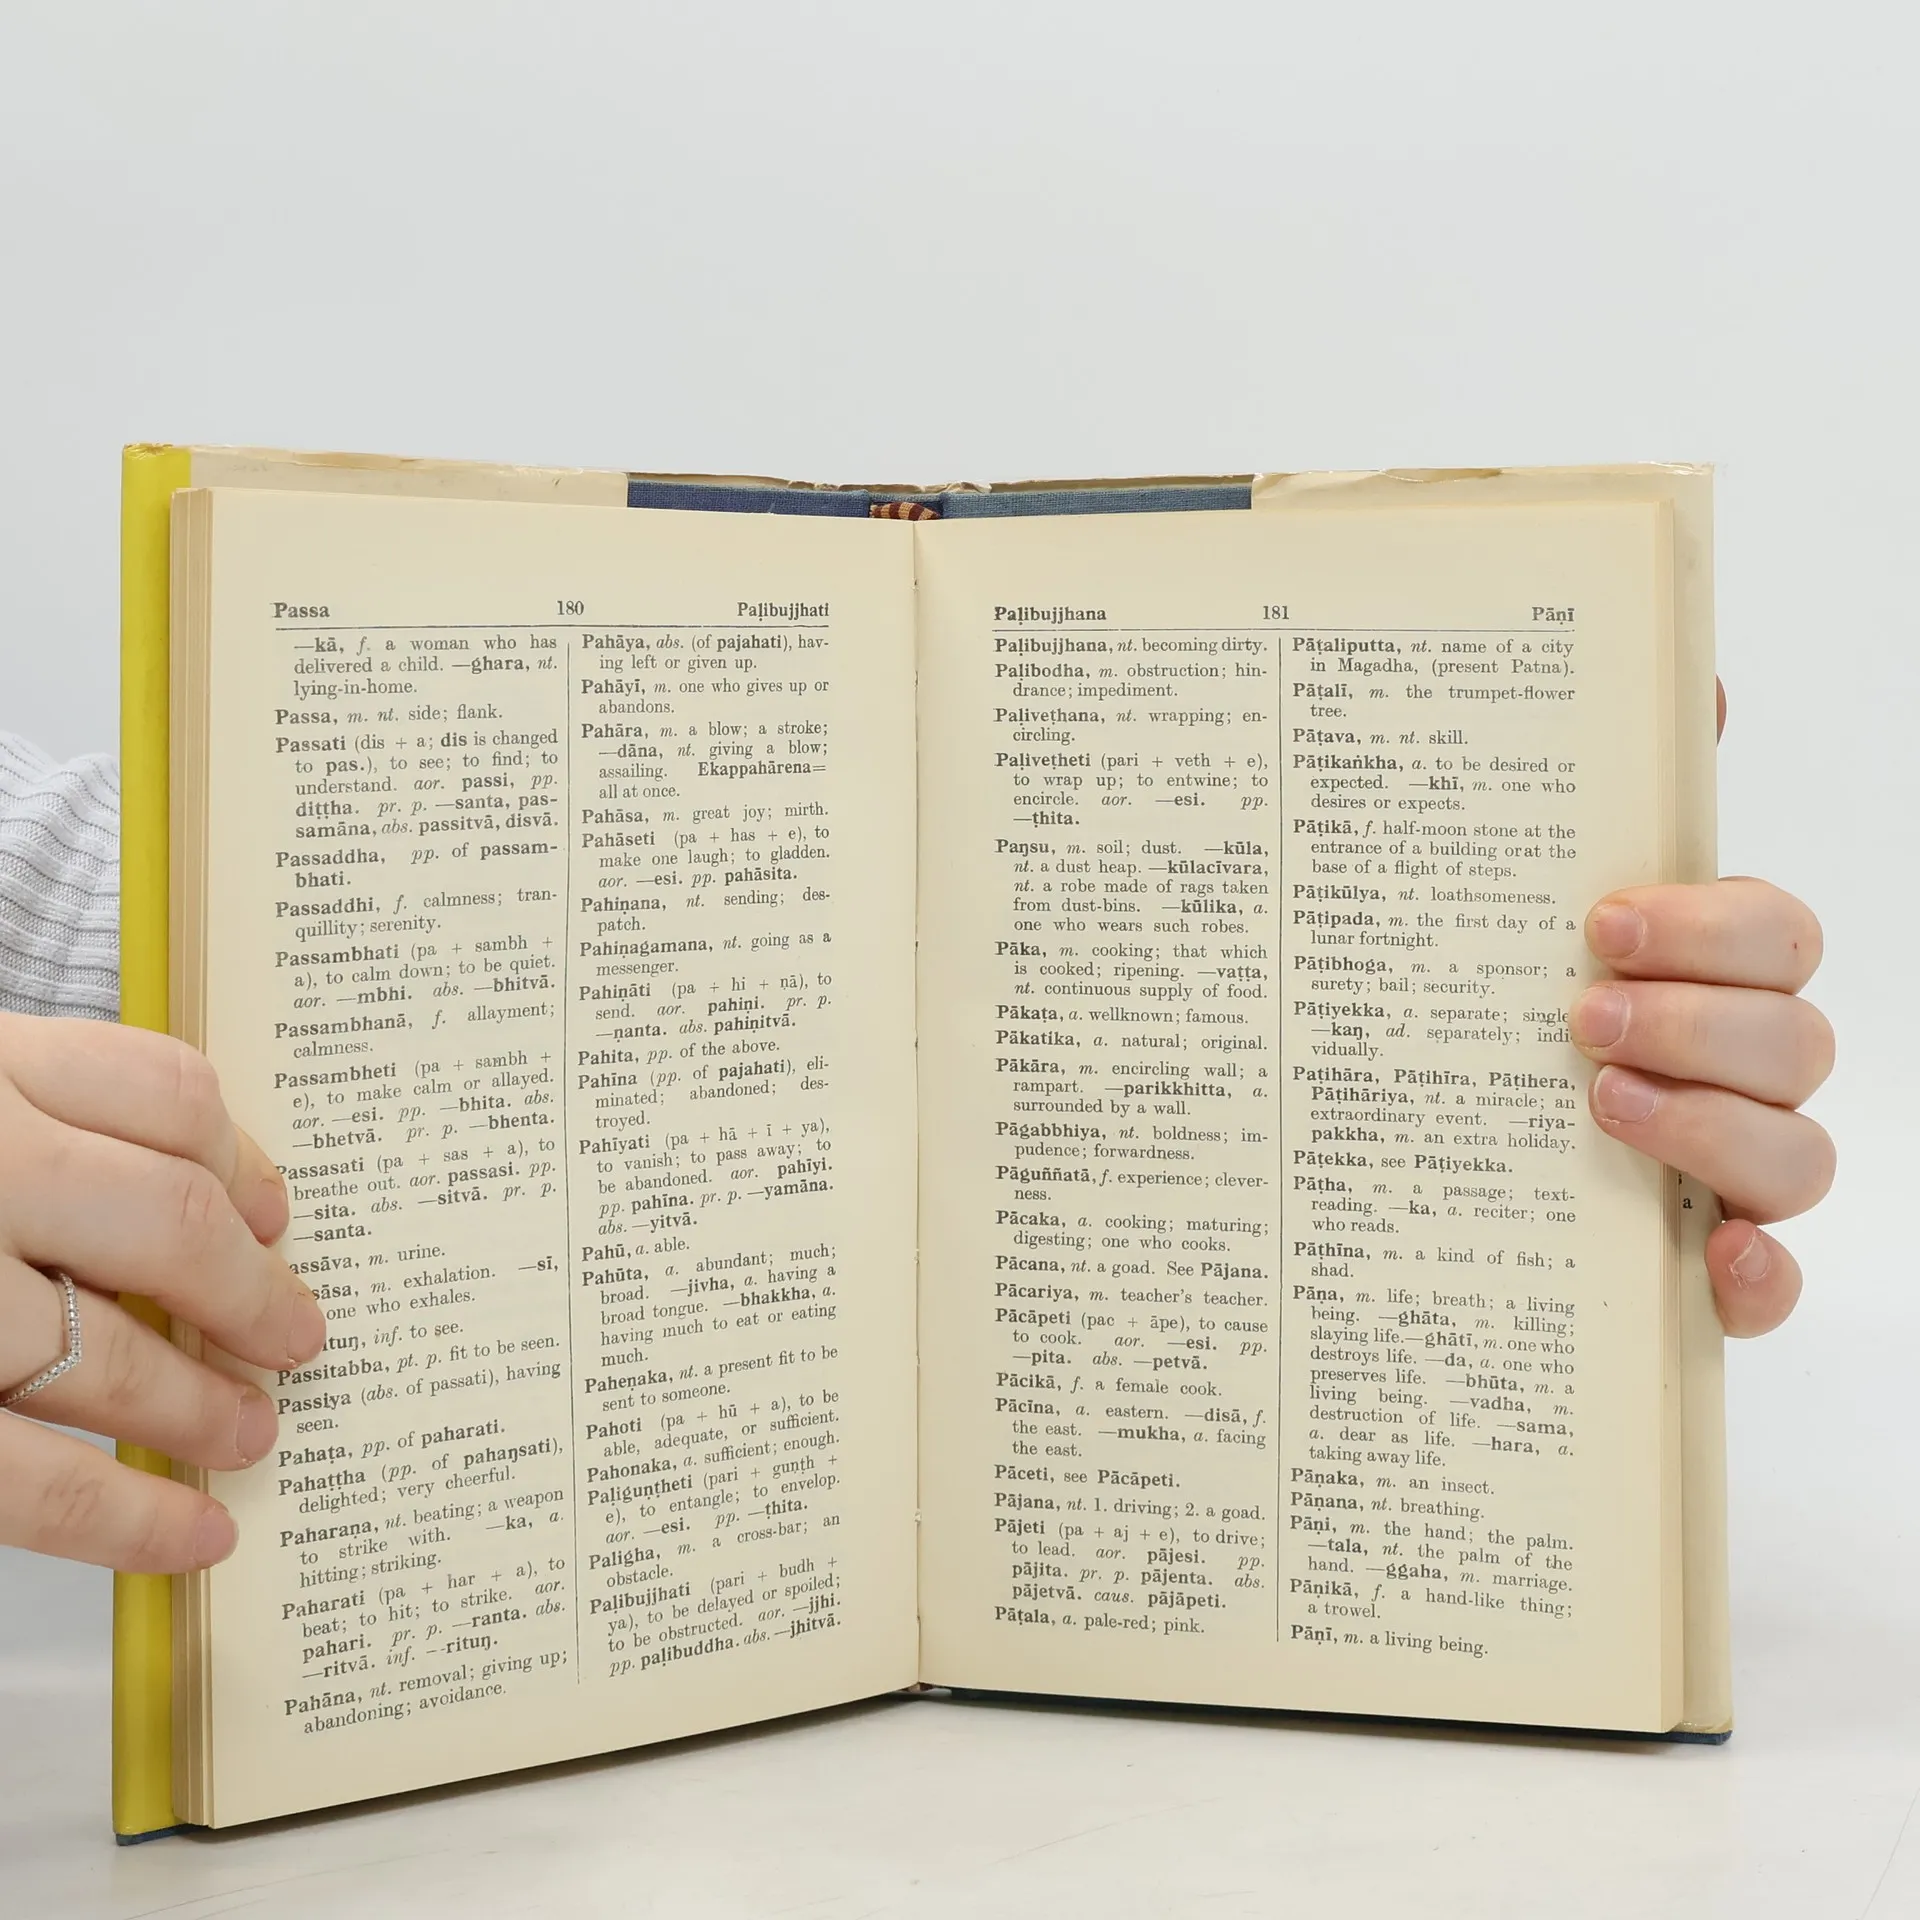 Passa 180 Paḷibujjhati
—kā, f. a woman who has
delivered a child. —ghara, nt.
lying-in-home.
Passa, m. nt. side; flank.
Passati (dis + a; dis is changed
to pas.), to see; to find; to
understand. aor. passi, pp.
diṭṭha. pr. p. —santa, pas-
samāna, abs. passitvā, disvā.
Passaddha, pp. of passam-
bhati.
Passaddhi, f. calmness; tran-
quillity; serenity.
Passambhati (pa + sambh +
a), to calm down; to be quiet.
aor. —mbhi. abs. —bhitvā.
Passambhanā, f. allayment;
calmness.
Passambheti (pa + sambh +
e), to make calm or allayed.
aor. —esi. pp. —bhita. abs.
—bhetvā. pr. p. —bhenta.
Passasati (pa + sas + a), to
breathe out. aor. passasi. pp.
—sita. abs. —sitvā. pr. p.
—santa.
assāva, m. urine.
sāsa, m. exhalation. —sī,
one who exhales.
ituŋ, inf. to see.
Passitabba, pt. p. fit to be seen.
Passiya (abs. of passati), having
seen.
Pahaṭa, pp. of paharati.
Pahaṭṭha (pp. of pahaŋsati),
delighted; very cheerful.
Paharaṇa, nt. beating; a weapon
to strike with. —ka, a.
hitting; striking.
Paharati (pa + har + a), to
beat; to hit; to strike. aor.
pahari. pr. p. —ranta. abs.
—ritvā. inf. —rituŋ.
Pahāna, nt. removal; giving up;
abandoning; avoidance.
Pahāya, abs. (of pajahati), hav-
ing left or given up.
Pahāyī, m. one who gives up or
abandons.
Pahāra, m. a blow; a stroke;
—dāna, nt. giving a blow;
assailing. Ekappahārena=
all at once.
Pahāsa, m. great joy; mirth.
Pahāseti (pa + has + e), to
make one laugh; to gladden.
aor. —esi. pp. pahāsita.
Pahiṇana, nt. sending; des-
patch.
Pahiṇagamana, nt. going as a
messenger.
Pahiṇāti (pa + hi + ṇā), to
send. aor. pahiṇi. pr. p.
—ṇanta. abs. pahiṇitvā.
Pahita, pp. of the above.
Pahīna (pp. of pajahati), eli-
minated; abandoned; des-
troyed.
Pahīyati (pa + hā + ī + ya),
to vanish; to pass away; to
be abandoned. aor. pahīyi.
pp. pahīna. pr. p. —yamāna.
abs. —yitvā.
Pahū, a. able.
Pahūta, a. abundant; much;
broad. —jivha, a. having a
broad tongue. —bhakkha, a.
having much to eat or eating
much.
Paheṇaka, nt. a present fit to be
sent to someone.
Pahoti (pa + hū + a), to be
able, adequate, or sufficient.
Pahonaka, a. sufficient; enough.
Paliguṇṭheti (pari + guṇṭh +
e), to entangle; to envelop.
aor. —esi. pp. —ṭhita.
Paligha, m. a cross-bar; an
obstacle.
Paḷibujjhati (pari + budh +
ya), to be delayed or spoiled;
to be obstructed. aor. —jjhi.
pp. paḷibuddha. abs. —jhitvā.
Paḷibujjhana 181 Pāṇī
Paḷibujjhana, nt. becoming dirty.
Paḷibodha, m. obstruction; hin-
drance; impediment.
Paḷiveṭhana, nt. wrapping; en-
circling.
Paḷiveṭheti (pari + veth + e),
to wrap up; to entwine; to
encircle. aor. —esi. pp.
—ṭhita.
Paŋsu, m. soil; dust. —kūla,
nt. a dust heap. —kūlacīvara,
nt. a robe made of rags taken
from dust-bins. —kūlika, a.
one who wears such robes.
Pāka, m. cooking; that which
is cooked; ripening. —vaṭṭa,
nt. continuous supply of food.
Pākaṭa, a. wellknown; famous.
Pākatika, a. natural; original.
Pākāra, m. encircling wall; a
rampart. —parikkhitta, a.
surrounded by a wall.
Pāgabbhiya, nt. boldness; im-
pudence; forwardness.
Pāguññatā, f. experience; clever-
ness.
Pācaka, a. cooking; maturing;
digesting; one who cooks.
Pācana, nt. a goad. See Pājana.
Pācariya, m. teacher's teacher.
Pācāpeti (pac + āpe), to cause
to cook. aor. —esi. pp.
—pita. abs. —petvā.
Pācikā, f. a female cook.
Pācīna, a. eastern. —disā, f.
the east. —mukha, a. facing
the east.
Pāceti, see Pācāpeti.
Pājana, nt. 1. driving; 2. a goad.
Pājeti (pa + aj + e), to drive;
to lead. aor. pājesi. pp.
pājita. pr. p. pājenta. abs.
pājetvā. caus. pājāpeti.
Pāṭala, a. pale-red; pink.
Pāṭaliputta, nt. name of a city
in Magadha, (present Patna).
Pāṭalī, m. the trumpet-flower
tree.
Pāṭava, m. nt. skill.
Pāṭikaṅkha, a. to be desired or
expected. —khī, m. one who
desires or expects.
Pāṭikā, f. half-moon stone at the
entrance of a building orat the
base of a flight of steps.
Pāṭikūlya, nt. loathsomeness.
Pāṭipada, m. the first day of a
lunar fortnight.
Pāṭibhoga, m. a sponsor; a
surety; bail; security.
Pāṭiyekka, a. separate; single
—kaŋ, ad. separately; indi-
vidually.
Paṭihāra, Pāṭihīra, Pāṭihera,
Pāṭihāriya, nt. a miracle; an
extraordinary event. —riya-
pakkha, m. an extra holiday.
Pāṭekka, see Pāṭiyekka.
Pāṭha, m. a passage; text-
reading. —ka, a. reciter; one
who reads.
Pāṭhīna, m. a kind of fish; a
shad.
Pāṇa, m. life; breath; a living
being. —ghāta, m. killing;
slaying life.—ghātī, m. one who
destroys life. —da, a. one who
preserves life. —bhūta, m. a
living being. —vadha, m.
destruction of life. —sama,
a. dear as life. —hara, a.
taking away life.
Pāṇaka, m. an insect.
Pāṇana, nt. breathing.
Pāṇi, m. the hand; the palm.
—tala, nt. the palm of the
hand. —ggaha, m. marriage.
Pāṇikā, f. a hand-like thing;
a trowel.
Pāṇī, m. a living being.
a